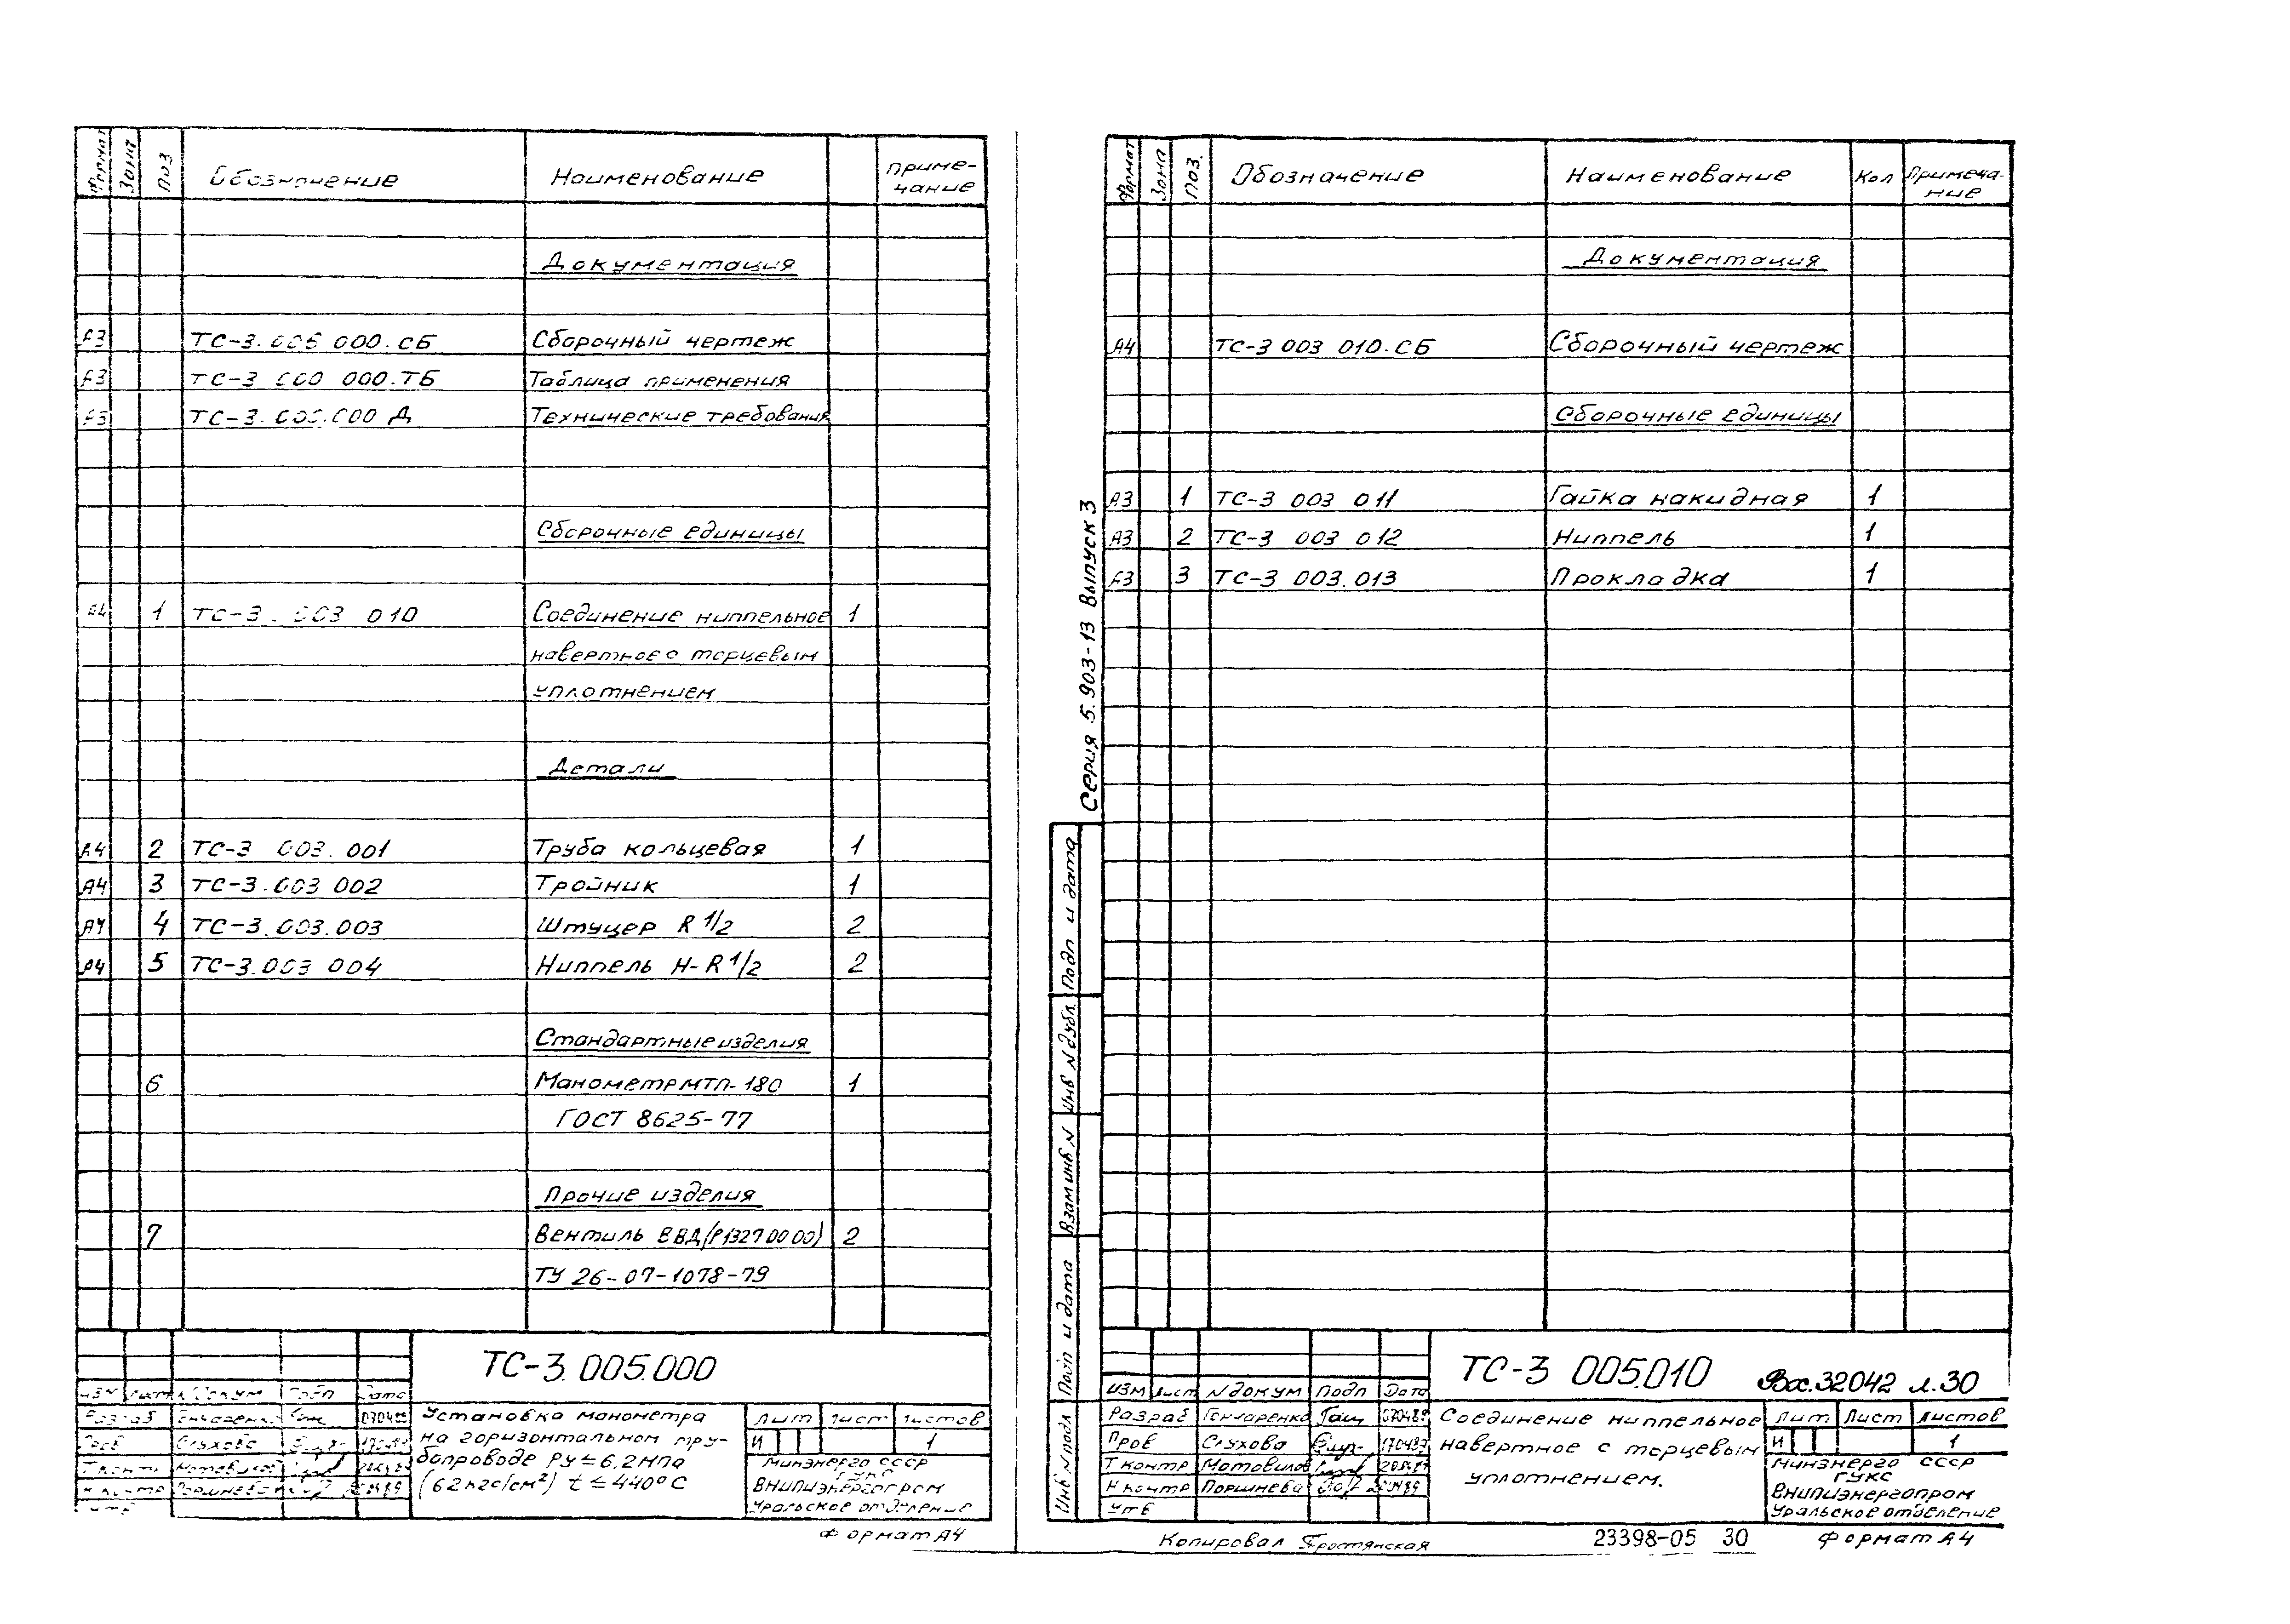 Формат Зона Поз Обозначение Наименование Приме-
чание
Документация
А3 ТС-3.005 000.СБ Сборочный чертеж
А3 ТС-3 000 000.ТБ Таблица применения
А3 ТС-3.000.000 Д Технические требования
Сборочные единицы
А4 1 ТС-3.003 010 Соединение ниппельное 1
навертное с торцевым
уплотнением
Детали
А4 2 ТС-3 003.001 Труба кольцевая 1
А4 3 ТС-3.003 002 Тройник 1
А4 4 ТС-3.003.003 Штуцер R 1/2 2
А4 5 ТС-3.003 004 Ниппель Н-R 1/2 2
Стандартные изделия
6 Манометр МТП-180 1
ГОСТ 8625-77
Прочие изделия
7 Вентиль ВВД(Р1327 00 00) 2
ТУ 26-07-1078-79
ТС-3.005.000
Изм Лист № докум Подп Дата
Разраб Гончаренко 070489
Пров Слухова 170489
Т контр Мотовилов
Н контр Поршнева 280489
Утв
Установка манометра
на горизонтальном тру-
бопроводе Ру≤6,2МПа
(62кгс/см²) t ≤440°С
Лит Лист Листов
И 1
Минэнерго СССР
ГУКС
ВНИПИэнергопром
Уральское отделение
Формат А4
Серия 5.903-13 Выпуск 3
Подп и дата
Инв № дубл.
Взам инв №
Подп и дата
Инв № подл
Формат Зона Поз. Обозначение Наименование Кол Примеча-
ние
Документация
А4 ТС-3 003 010.СБ Сборочный чертеж
Сборочные единицы
А3 1 ТС-3 003 011 Гайка накидная 1
А3 2 ТС-3 003 012 Ниппель 1
А3 3 ТС-3 003.013 Прокладка 1
ТС-3 005.010 Вос.32042 л.30
Изм Лист № докум Подп Дата
Разраб Гончаренко 070489
Пров Слухова 170489
Т контр Мотовилов
Н контр Поршнева 280489
Утв
Соединение ниппельное
навертное с торцевым
уплотнением.
Лит. Лист Листов
И 1
Минэнерго СССР
ГУКС
ВНИПИэнергопром
Уральское отделение
Копировал Простянская 23398-05 30 Формат А4